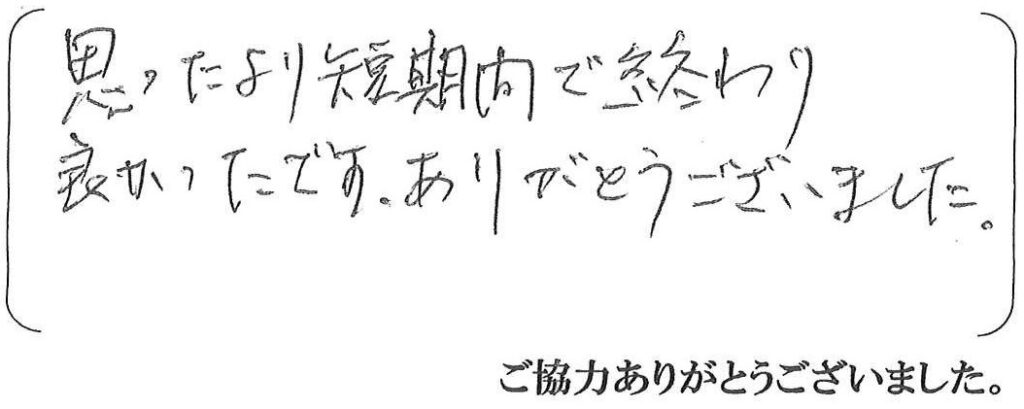 思ったより短期間で終わり
良かったです。ありがとうございました。
ご協力ありがとうございました。